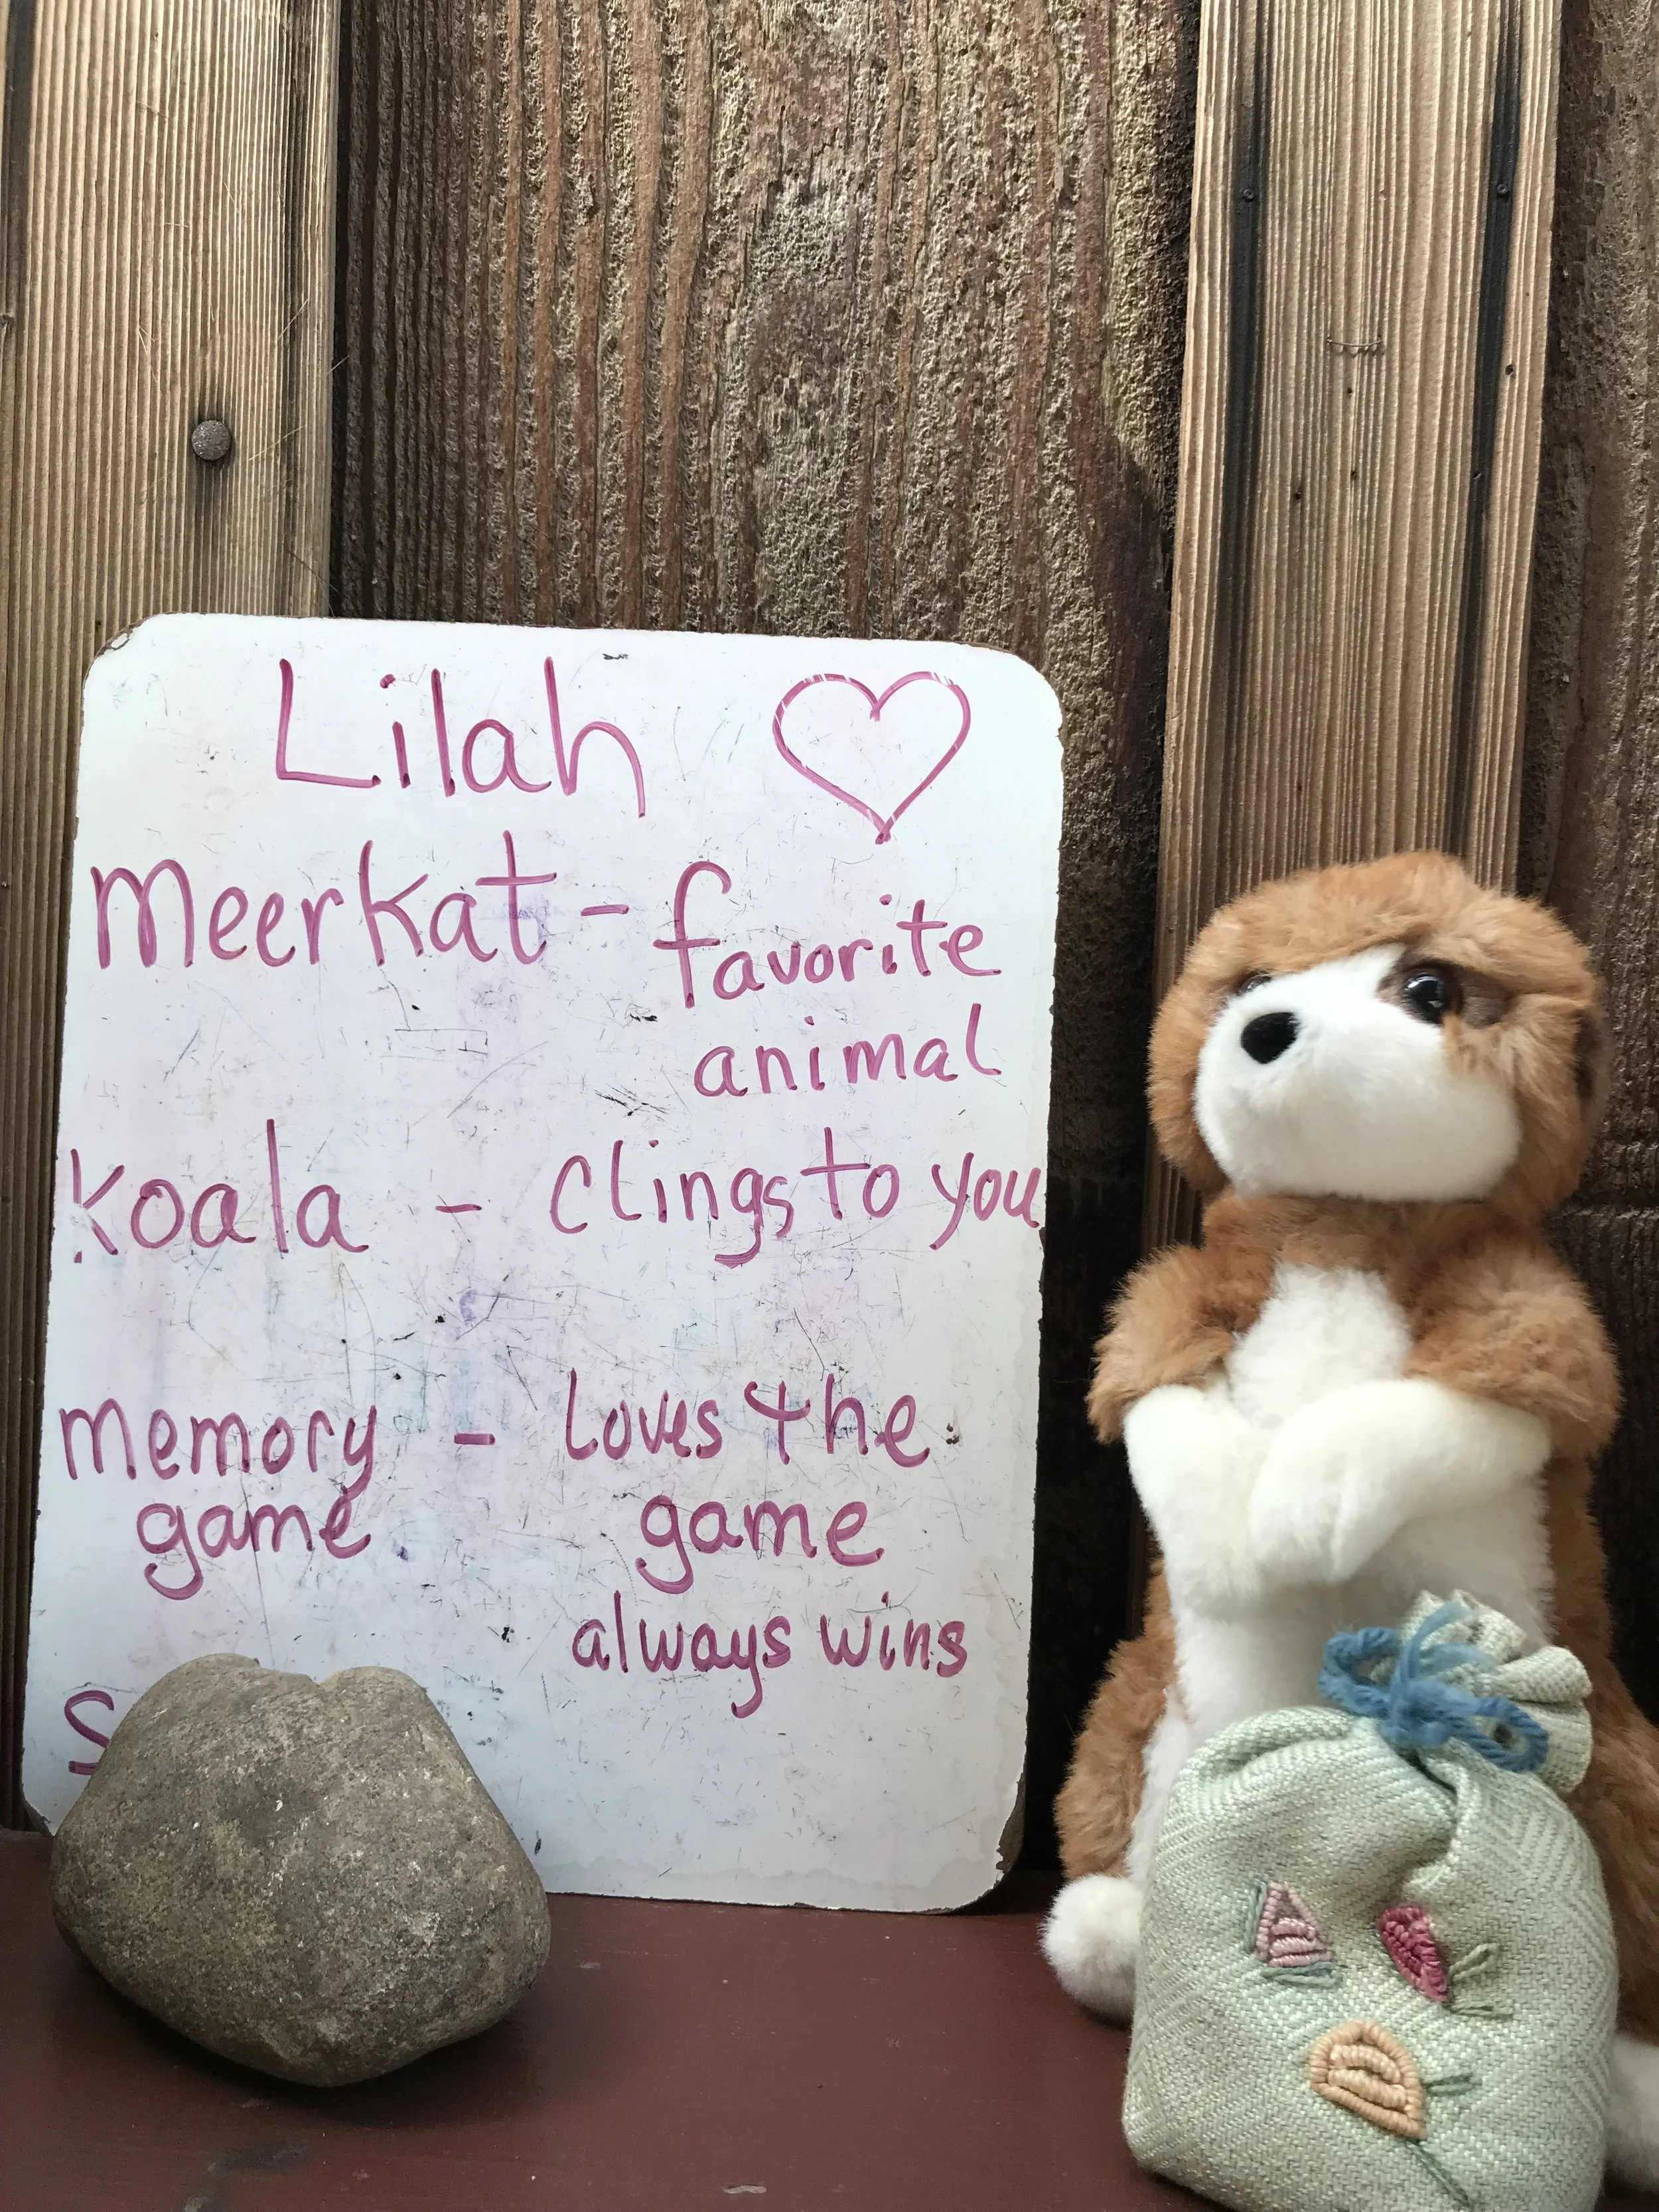 Lilah ♡
Meerkat - favorite
animal
Koala - clings to you
memory - loves the
game - game
always wins